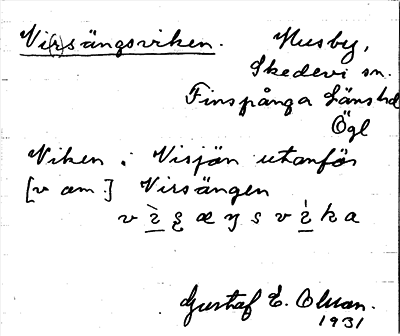 Vi(r)sängsviken. Husby,
Skedevi sn.
Finspånga Länshd
Ögl
Viken i Visjön utanför
[v om.] Virsängen
Gustaf E. Olson.
1931